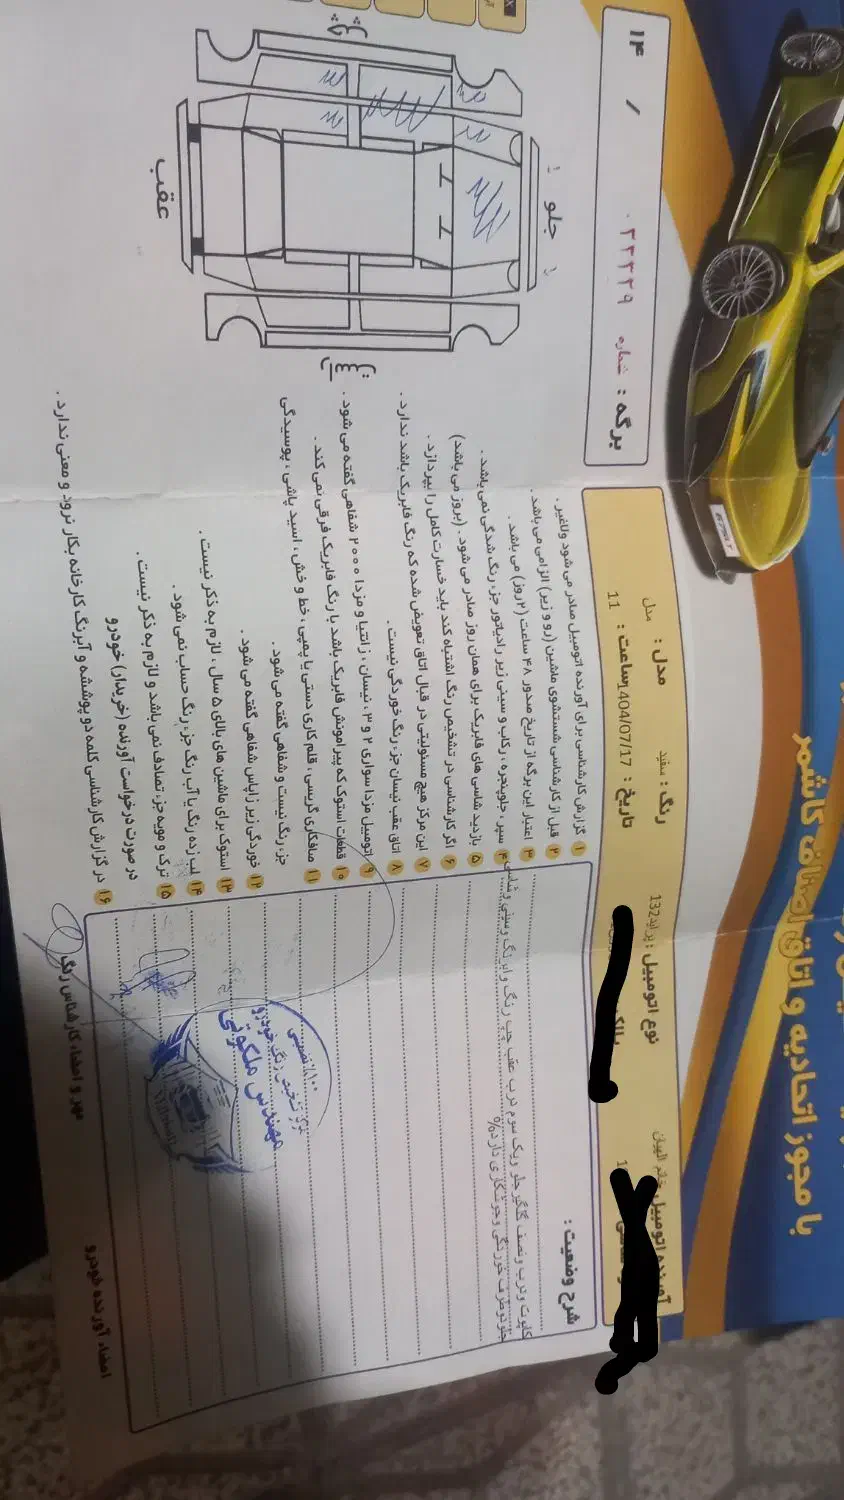 با مجوز اتحادیه و اتاق اصناف کاشمر
آورنده اتومبیل
نوع اتومبیل : پراید132
رنگ : سفید
مدل : مدل
تاریخ : 1404/07/17
ساعت : 11
برگه : شماره ۰۳۲۳۲۹
۱۴ /
شرح وضعیت :
کاپوت و درب و نصف گلگیر جلو و یک سوم درب عقب چپ رنگ و ابرنگ و سینی و شاسی
جلو دو طرف خوردگی و جوشکاری دارد%
۱ گزارش کارشناسی برای آورنده اتومبیل صادر می شود ولاغیر .
۲ قبل از کارشناسی شستشوی ماشین (رو و زیر) الزامی می باشد .
۳ اعتبار این برگه از تاریخ صدور ۴۸ ساعت (۲ روز) می باشد .
۴ سپر ، جلوپنجره ، رکاب و سینی زیر رادیاتور جزء رنگ شدگی نمی باشد .
۵ بازدید شاسی های فابریک برای همان روز صادر می شود . (بروز می باشد)
۶ اگر کارشناسی در تشخیص رنگ اشتباه کند باید خسارت کامل را بپردازد .
۷ این مرکز هیچ مسئولیتی در قبال اتاق تعویض شده که رنگ فابریک باشد ندارد .
۸ اتاق عقب نیسان جزء رنگ خوردگی نیست .
۹ اتومبیل مزدا سواری ۲ و ۳ ، نیسان ، زانتیا و مزدا ۲۰۰۰ شفاهی گفته می شود .
۱۰ قطعات استوک که پیرامونش فابریک باشد با رنگ فابریک فرقی نمی کند .
۱۱ صافکاری گریسی ، قلم کاری دستی یا پمپی ، خط و خش ، اسید پاشی ، پوسیدگی
جزء رنگ نیست و شفاهی گفته می شود .
۱۲ خوردگی زیر زاپاس شفاهی گفته می شود .
۱۳ استوک برای ماشین های بالای ۵ سال ، لازم به ذکر نیست .
۱۴ لب زده رنگ یا آب رنگ جزء رنگ حساب نمی شود .
۱۵ ترک و مویه جزء تصادف نمی باشد و لازم به ذکر نیست .
در صورت درخواست آورنده (خریدار) خودرو
۱۶ در گزارش کارشناسی کلمه دو پوششه و آبرنگ کارخانه بکار نرود و معنی ندارد .
جلو
عقب
چپ
راست
۱۰۰٪ تضمینی
مرکز تشخیص رنگ خودرو
مهندس ملکوتی
مهر و امضاء کارشناس رنگ
امضاء آورنده خودرو